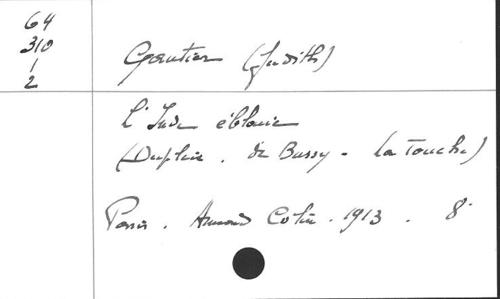 64
310
1
2
Gautier (Judith)
L'Inde éblouie
(Dupleix. de Bussy - La Touche)
Paris. Armand Colin. 1913. 8°